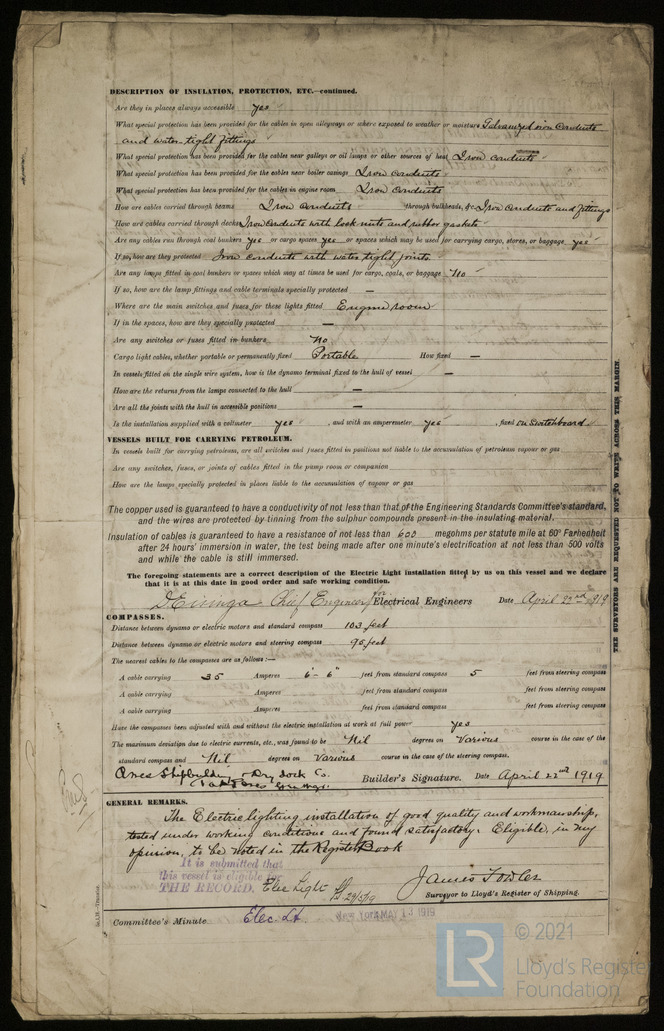 DESCRIPTION OF INSULATION, PROTECTION, ETC.—continued.
Are they in places always accessible yes
What special protection has been provided for the cables in open alleyways or where exposed to weather or moisture Galvanized iron conduits
and water-tight fittings
What special protection has been provided for the cables near galleys or oil lamps or other sources of heat Iron conduits
What special protection has been provided for the cables near boiler casings Iron conduits
What special protection has been provided for the cables in engine room Iron conduits
How are cables carried through beams Iron conduits through bulkheads, &c. Iron conduits and fittings
How are cables carried through decks Iron conduits with lock nuts and rubber gaskets
Are any cables run through coal bunkers yes or cargo spaces yes or spaces which may be used for carrying cargo, stores, or baggage yes
If so, how are they protected Iron conduits with water tight joints
Are any lamps fitted in coal bunkers or spaces which may at times be used for cargo, coals, or baggage No
If so, how are the lamp fittings and cable terminals specially protected —
Where are the main switches and fuses for these lights fitted Engine room
If in the spaces, how are they specially protected —
Are any switches or fuses fitted in bunkers No
Cargo light cables, whether portable or permanently fixed Portable How fixed —
In vessels fitted on the single wire system, how is the dynamo terminal fixed to the hull of vessel —
How are the returns from the lamps connected to the hull —
Are all the joints with the hull in accessible positions —
Is the installation supplied with a voltmeter yes, and with an amperemeter yes, fixed on Switchboard
VESSELS BUILT FOR CARRYING PETROLEUM.
In vessels built for carrying petroleum, are all switches and fuses fitted in positions not liable to the accumulation of petroleum vapour or gas
Are any switches, fuses, or joints of cables fitted in the pump room or companion
How are the lamps specially protected in places liable to the accumulation of vapour or gas
The copper used is guaranteed to have a conductivity of not less than that of the Engineering Standards Committee's standard,
and the wires are protected by tinning from the sulphur compounds present in the insulating material.
Insulation of cables is guaranteed to have a resistance of not less than 600 megohms per statute mile at 60° Farhenheit
after 24 hours' immersion in water, the test being made after one minute's electrification at not less than 500 volts
and while the cable is still immersed.
The foregoing statements are a correct description of the Electric Light installation fitted by us on this vessel and we declare
that it is at this date in good order and safe working condition.
Chief Engineer for Electrical Engineers Date April 22nd 1919
COMPASSES.
Distance between dynamo or electric motors and standard compass 103 feet
Distance between dynamo or electric motors and steering compass 95 feet
The nearest cables to the compasses are as follows:—
A cable carrying 35 Amperes 6'-6" feet from standard compass 5 feet from steering compass
A cable carrying Amperes feet from standard compass feet from steering compass
A cable carrying Amperes feet from standard compass feet from steering compass
Have the compasses been adjusted with and without the electric installation at work at full power yes
The maximum deviation due to electric currents, etc., was found to be Nil degrees on Various course in the case of the
standard compass and Nil degrees on Various course in the case of the steering compass.
Ames Shipbuilding & Dry dock Co.
Builder's Signature. Date April 22nd 1919
GENERAL REMARKS.
The Electric lighting installation of good quality and workmanship,
tested under working conditions and found satisfactory. Eligible, in my
opinion, to be noted in the Register Book
It is submitted that
this vessel is eligible for
THE RECORD. Elec Light 29/5/19
James Fowler
Surveyor to Lloyd's Register of Shipping.
Committee's Minute Elec. Lt. New York MAY 13 1919
THE SURVEYORS ARE REQUESTED NOT TO WRITE ACROSS THIS MARGIN.
LR
© 2021
Lloyd's Register
Foundation